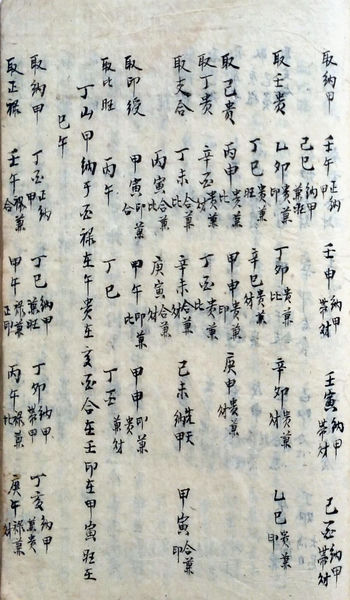 取納甲 壬午正納甲 壬申帶財 壬寅納甲帶財 己酉納甲帶財
己巳納甲兼旺
取壬貴 乙卯貴兼印 丁卯貴兼比 辛卯貴兼財 乙巳貴兼印
丁巳貴兼旺 辛巳貴兼財
取己貴 丙申貴兼比 甲申貴兼印 庚申貴兼財
取丁貴 辛酉貴兼財 丁酉貴兼比
取支合 丁未合兼比 辛未合兼財 己未 甲寅合兼印
丙寅合兼比 庚寅合兼財
取印綬 甲寅印兼合 甲午印兼比 甲申印兼貴
取比旺 丙午 丁巳 丁酉兼財
丁山甲納于酉祿在午貴在亥酉合在壬印在甲寅旺在
巳午
取納甲 丁酉正納甲 丁巳納甲兼旺 丁卯納甲帶甲 丁亥納甲兼貴
取正祿 壬午祿兼合 甲午祿兼正印 丙午祿兼比 庚午祿兼財